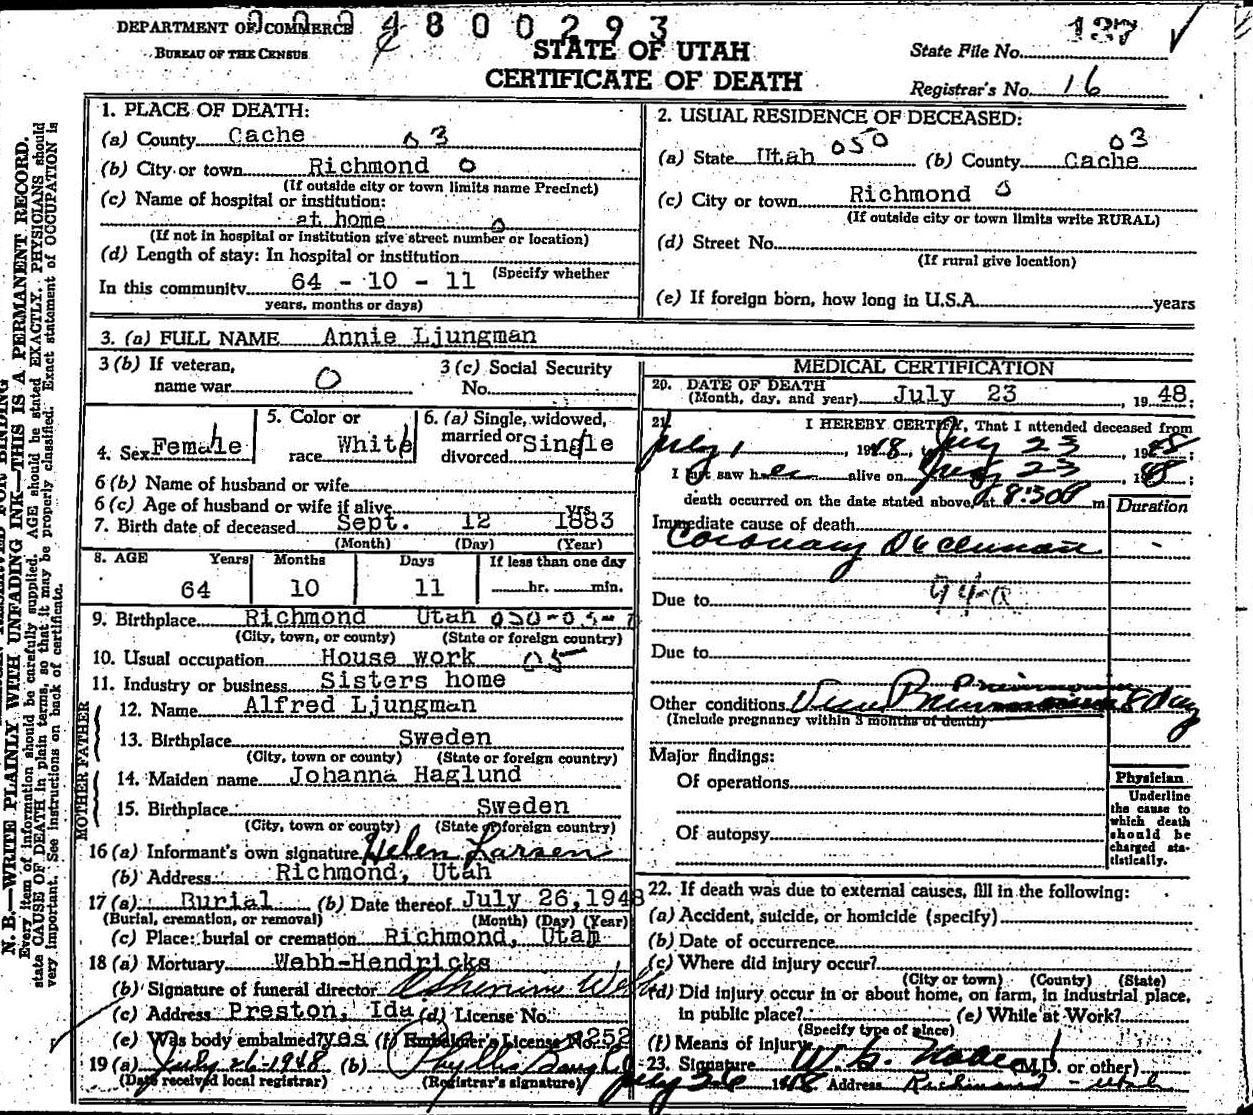 DEPARTMENT OF COMMERCE
BUREAU OF THE CENSUS
4800293
STATE OF UTAH
CERTIFICATE OF DEATH
State File No. 137
Registrar's No. 16
N. B.—WRITE PLAINLY WITH UNFADING INK—THIS IS A PERMANENT RECORD.
Every item of information should be carefully supplied. AGE should be stated EXACTLY. PHYSICIANS should
state CAUSE OF DEATH in plain terms, so that it may be properly classified. Exact statement of OCCUPATION is
very important. See instructions on back of certificate.
1. PLACE OF DEATH:
(a) County Cache 03
(b) City or town Richmond 0
(If outside city or town limits name Precinct)
(c) Name of hospital or institution:
at home 0
(If not in hospital or institution give street number or location)
(d) Length of stay: In hospital or institution
(Specify whether
In this community 64 - 10 - 11
years, months or days)
2. USUAL RESIDENCE OF DECEASED:
(a) State Utah 050 (b) County Cache 03
(c) City or town Richmond 0
(If outside city or town limits write RURAL)
(d) Street No.
(If rural give location)
(e) If foreign born, how long in U.S.A. years
3. (a) FULL NAME Annie Ljungman
3 (b) If veteran,
name war 0
3 (c) Social Security
No.
4. Sex Female
5. Color or
race White
6. (a) Single, widowed,
married or
divorced Single
6 (b) Name of husband or wife
6 (c) Age of husband or wife if alive yrs.
7. Birth date of deceased Sept. 12 1883
(Month) (Day) (Year)
8. AGE Years Months Days If less than one day
64 10 11 hr. min.
9. Birthplace Richmond Utah
(City, town, or county) (State or foreign country)
10. Usual occupation House work 05
11. Industry or business Sisters home
FATHER
12. Name Alfred Ljungman
13. Birthplace Sweden
(City, town or county) (State or foreign country)
MOTHER
14. Maiden name Johanna Haglund
15. Birthplace Sweden
(City, town or county) (State or foreign country)
16 (a) Informant's own signature Helen Larsen
(b) Address Richmond, Utah
17 (a) Burial (b) Date thereof July 26, 1948
(Burial, cremation, or removal) (Month) (Day) (Year)
(c) Place: burial or cremation Richmond, Utah
18 (a) Mortuary Webb-Hendricks
(b) Signature of funeral director
(c) Address Preston, Ida (d) License No.
(e) Was body embalmed? yes (f) Embalmer's License No. 252
19 (a) July 26-1948 (b) Phyllis
(Date received local registrar) (Registrar's signature)
MEDICAL CERTIFICATION
20. DATE OF DEATH
(Month, day, and year) July 23, 1948:
21. I HEREBY CERTIFY, That I attended deceased from
July 1, 1948, July 23, 1948
I last saw her alive on July 23, 1948
death occurred on the date stated above, at 8:30P m.
Duration
Immediate cause of death
Coronary Occlusion
94-a
Due to
Due to
Other conditions
(Include pregnancy within 3 months of death)
Major findings:
Of operations
Of autopsy
Physician
Underline
the cause to
which death
should be
charged sta-
tistically.
22. If death was due to external causes, fill in the following:
(a) Accident, suicide, or homicide (specify)
(b) Date of occurrence
(c) Where did injury occur?
(City or town) (County) (State)
(d) Did injury occur in or about home, on farm, in industrial place,
in public place? (e) While at Work?
(Specify type of place)
(f) Means of injury
23. Signature (M.D. or other)
July 26 1948 Address Richmond - Utah